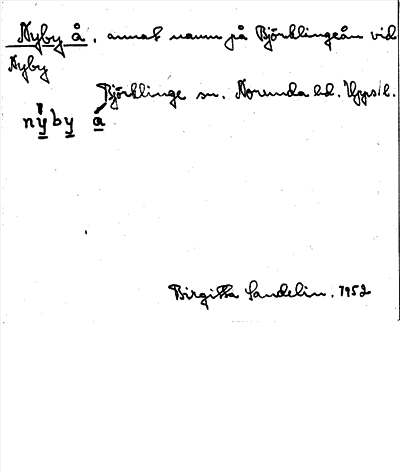 Nyby å, annat namn på Björklingeån vid
Nyby
Björklinge sn. Norunda hd. Upps. l.
nyby å
Birgitta Sandelin. 1952